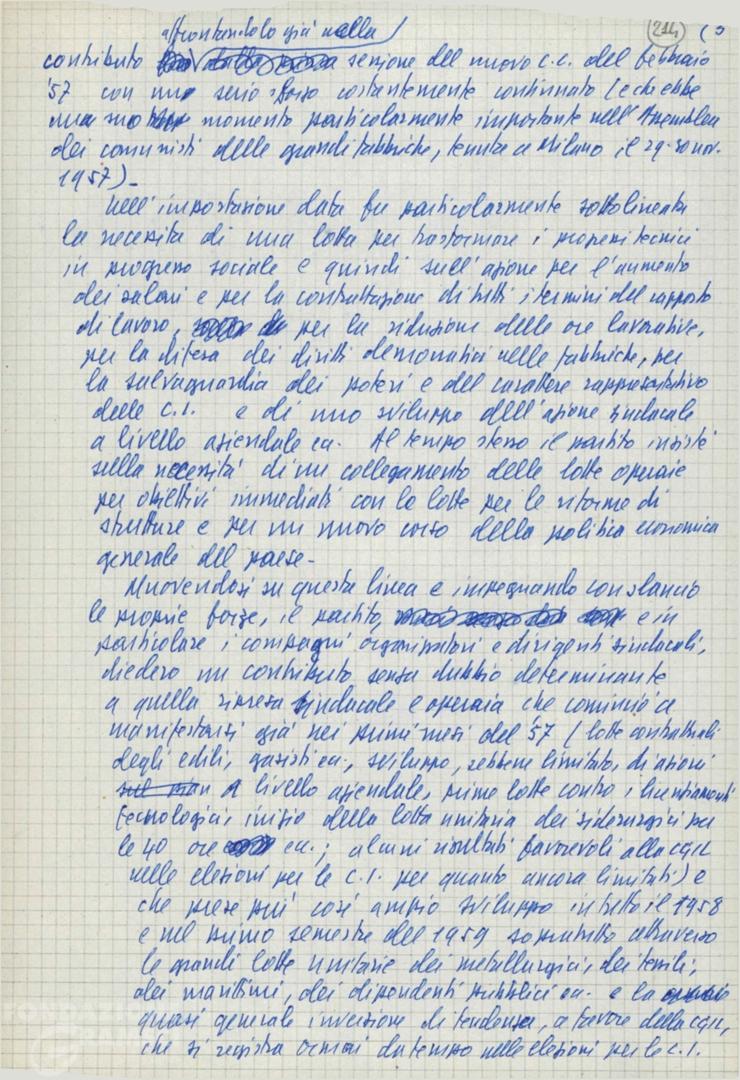 affrontandolo già nella
214 (3
contributo sessione del nuovo c.c. del febbraio
'57 con uno serio sforzo costantemente continuato (e che ebbe
una momento particolarmente importante nell'Assemblea
dei comunisti delle grandi fabbriche, tenuta a Milano il 29-30 nov.
1957)-
Nell'impostazione data fu particolarmente sottolineata
la necessità di una lotta per trasformare i progressi tecnici
in progresso sociale e quindi sull'azione per l'aumento
dei salari e per la contrattazione di tutti i termini del rapporto
di lavoro, per la riduzione delle ore lavorative,
per la difesa dei diritti democratici nelle fabbriche, per
la salvaguardia dei poteri e del carattere rappresentativo
delle C.I. e di uno sviluppo dell'azione sindacale
a livello aziendale ecc. Al tempo stesso il partito insisté
sulla necessità di un collegamento delle lotte operaie
per obiettivi immediati con le lotte per le riforme di
strutture e per un nuovo corso della politica economica
generale del paese-
Muovendosi su questa linea e impegnando con slancio
le proprie forze, il partito, e in
particolare i compagni organizzatori e dirigenti sindacali,
diedero un contributo senza dubbio determinante
a quella ripresa sindacale e operaia che cominciò a
manifestarsi già nei primi mesi del '57 (lotte contrattuali
degli edili, gasisti ecc., sviluppo, sebbene limitato, di azioni
a livello aziendale, prime lotte contro i licenziamenti
tecnologici, inizio della lotta unitaria dei siderurgici per
le 40 ore ecc.; alcuni risultati favorevoli alla CGIL
nelle elezioni per le C.I. per quanto ancora limitati) e
che prese poi così ampio sviluppo in tutto il 1958
e nel primo semestre del 1959 soprattutto attraverso
le grandi lotte unitarie dei metallurgici, dei tessili,
dei marittimi, dei dipendenti pubblici ecc. e la
quasi generale inversione di tendenza, a favore della CGIL,
che si registra ormai da tempo nelle elezioni per le C.I.